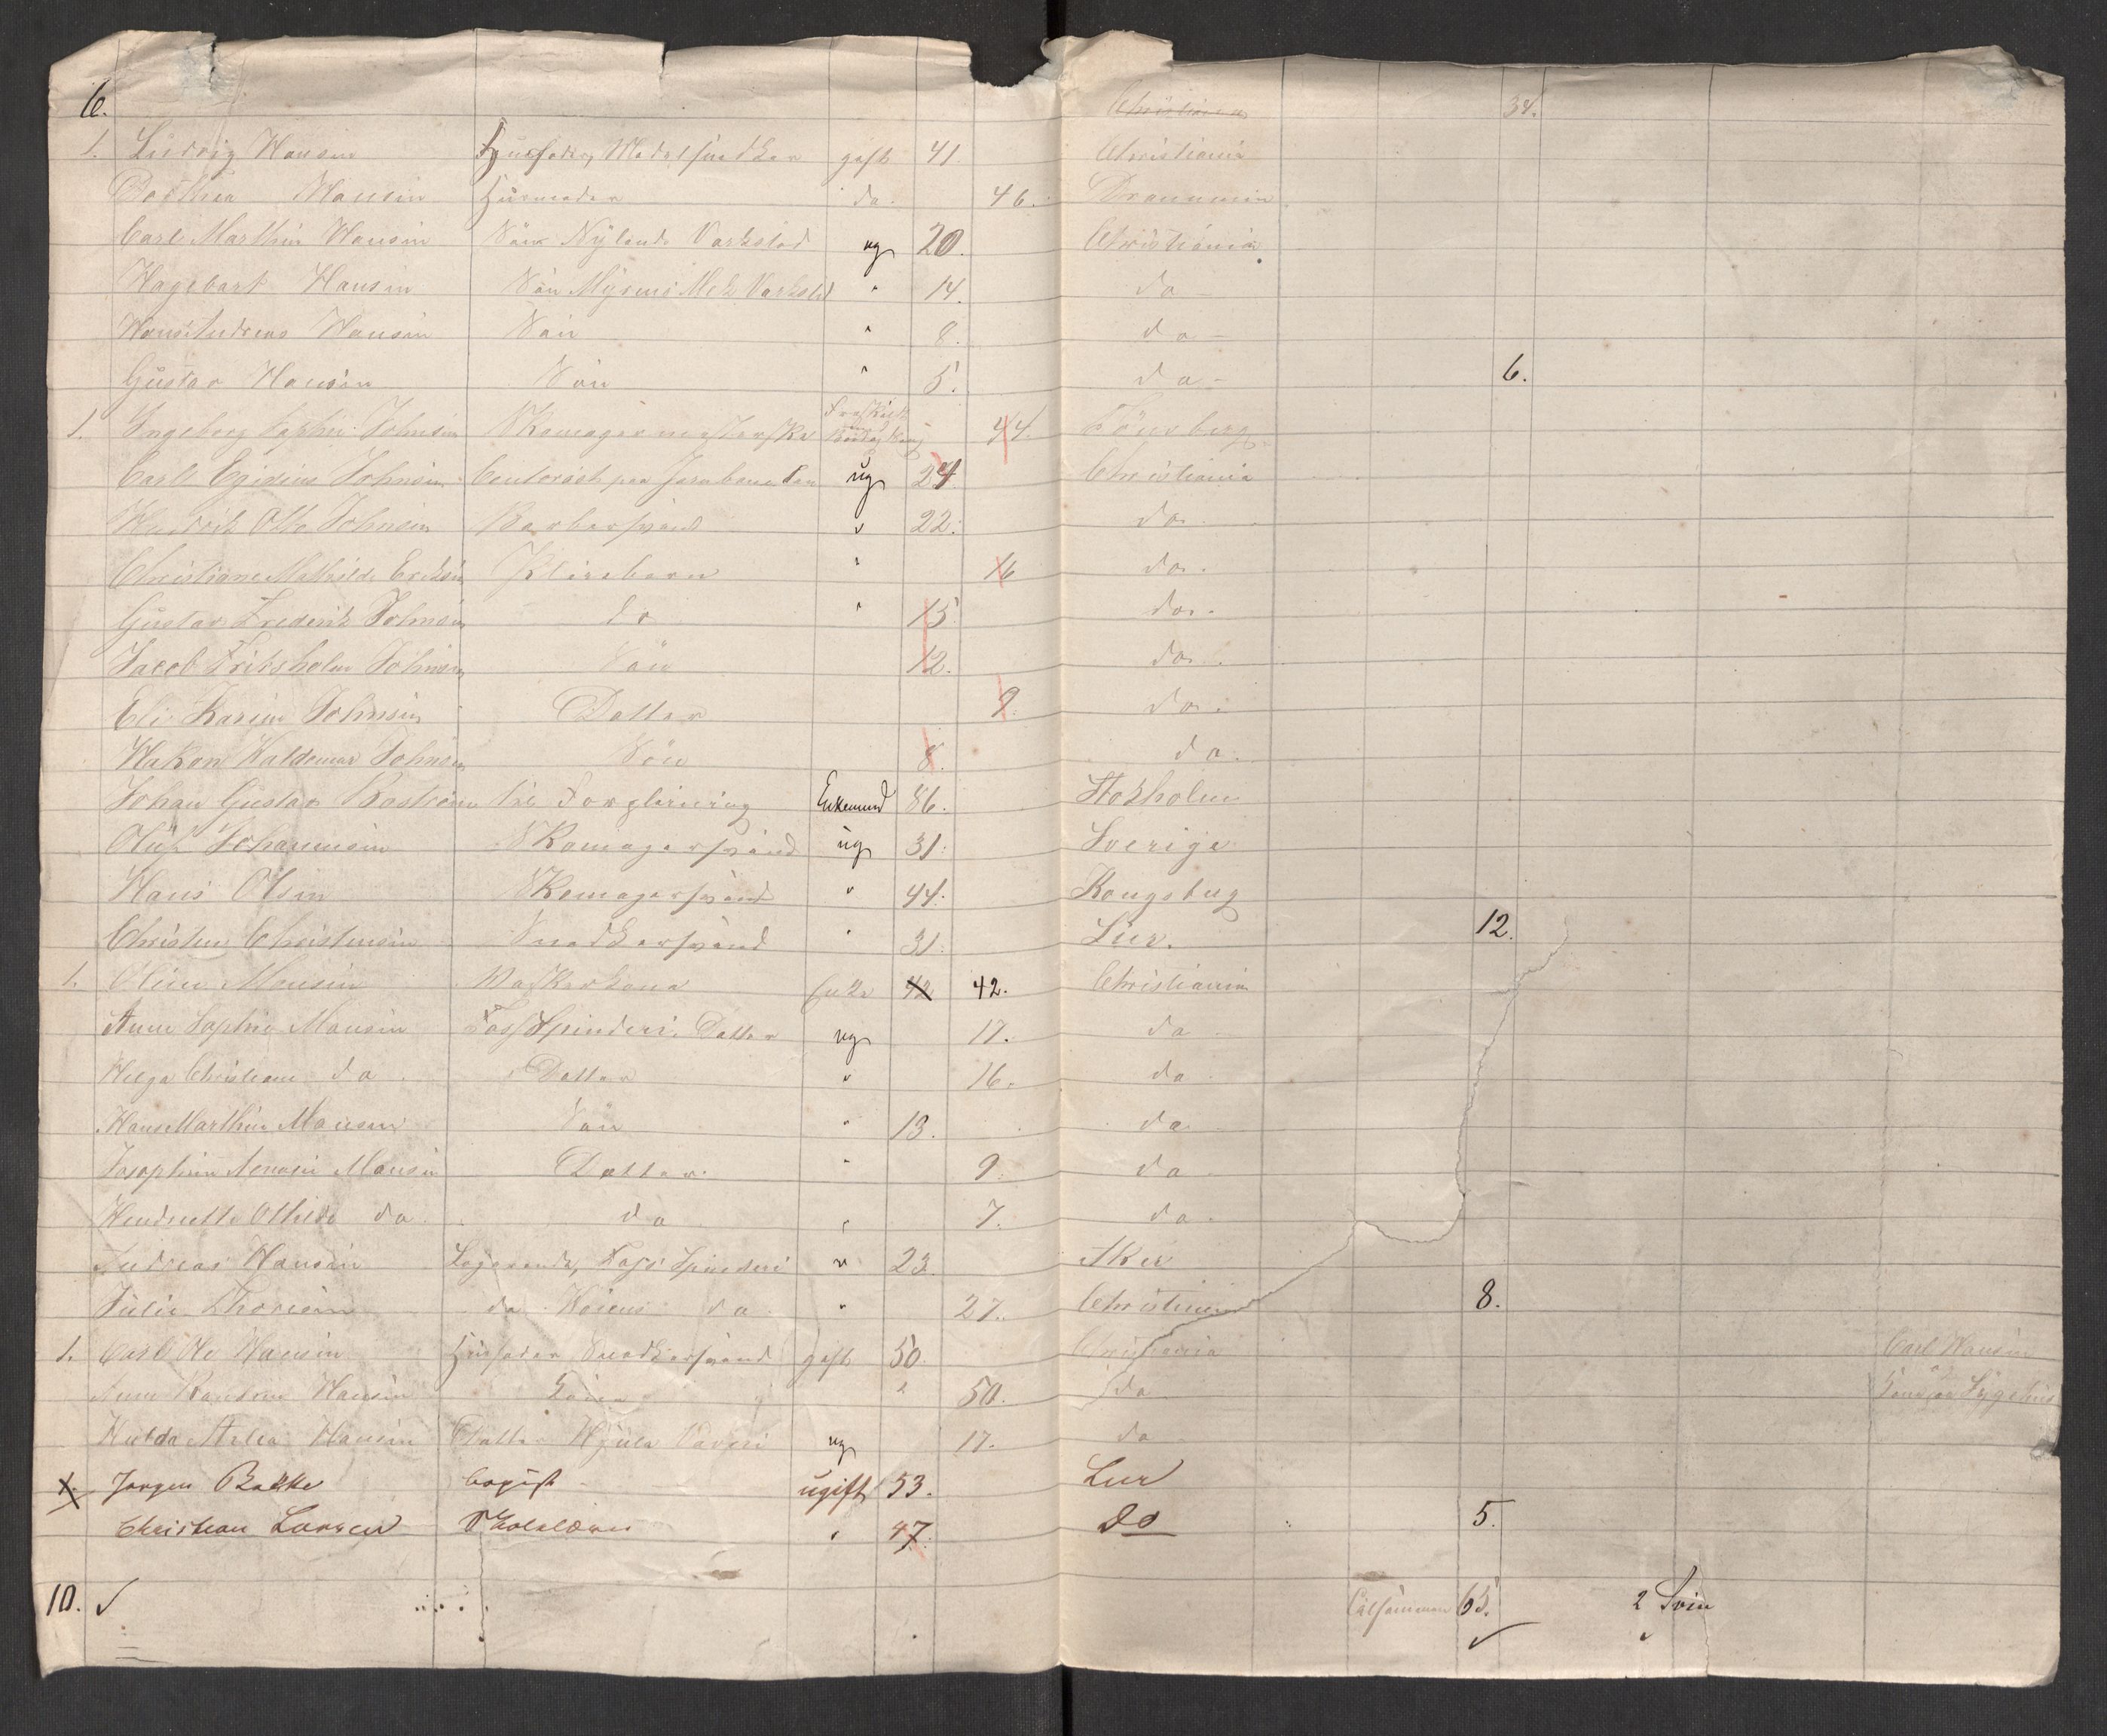 6. Christiania 34.
1. Ludvig Hansen Husfader, Modelsnedker gift 41. Christiania
Dorthea Hansen Husmoder do. 46. Drammen
Carl Marthin Hansen Søn Nylands Værksted ug 20. Christiania
Hagebart Hansen Søn Myrens Mek Værksted " 14. do
Hans Andreas Hansen Søn " 8. do
Gustav Hansen Søn " 5. do 6.
1. Ingeborg Sophie Johnsen Skomagermesterske Fraskilt 44. Tönsberg
Carl Egidius Johnsen Contorist paa Jernbanen ug 24. Christiania
Hendrik Otto Johnsen Barbersvend " 22. do.
Christiane Mathilde Eriksen Pleiebarn " 16 do.
Gustav Frederik Johnsen do " 15. do.
Jacob Fritsholm Johnsen Søn 12. do.
Eli Karine Johnsen Datter 9. do.
Hakon Waldemar Johnsen Søn 8. do.
Johan Gustav Boström til Forpleining Enkemand 86. Stokholm
Oluf Johannesen Skomagersvend ug 31. Sverige
Hans Olsen Skomagersvend " 44. Kongsberg
Christen Christensen Snedkersvend " 31. Lier. 12.
1. Oline Monsen Vaskerkone Enke 42 42. Christiania
Anne Sophie Monsen Foss Spinderi Datter ug 17. do
Helga Christiane do. Datter " 16. do.
Hans Marthin Monsen Søn " 13. do
Josephine Monsen Datter " 9. do
Hendriette Othilde do. do " 7. do.
Andreas Hansen Logerende, Foss Spinderi " 23. Aker
Julie Thoresen do. Voiens do. " 27. Christiania 8.
1. Carl Hansen Husfader Snedkersvend gift 50. Christiania Carl Hansen
Anne Hansen Kone " 50. do Sygehus
Hulda Hansen Datter Hjula Væveri ug 17. do
1. Jørgen Bakke Logist ugift 53. Lier
Christian Larsen Skolelærer " 47. do 5.
10. ✓ Tilsammen 65. 2 Svin